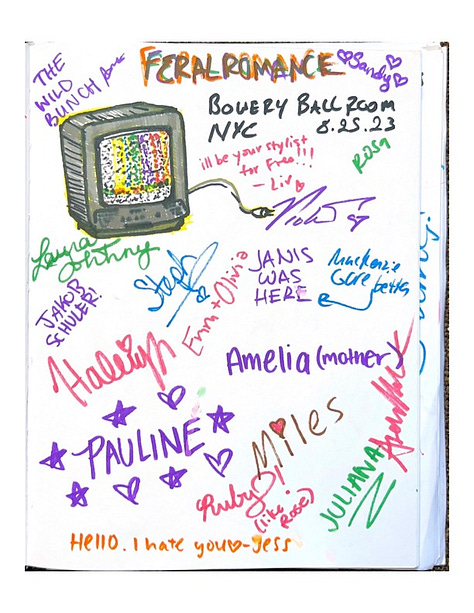 FERALROMANCE
THE
WILD
BUNCH
Sandy
BOWERY BALLROOM
NYC 8.25.23
ill be your stylist
for Free!!!
- Liv
ROSY
Laura
Johnny
Steph
Emma + Olivia
JANIS
WAS
HERE
Mackenzie
Gore
JAKOB
SCHULER!
Haleigh
Amelia (mother)
PAULINE
Miles
Ruby!
(like
Rose)
JULIANA
HELLO. I hate you - Jess